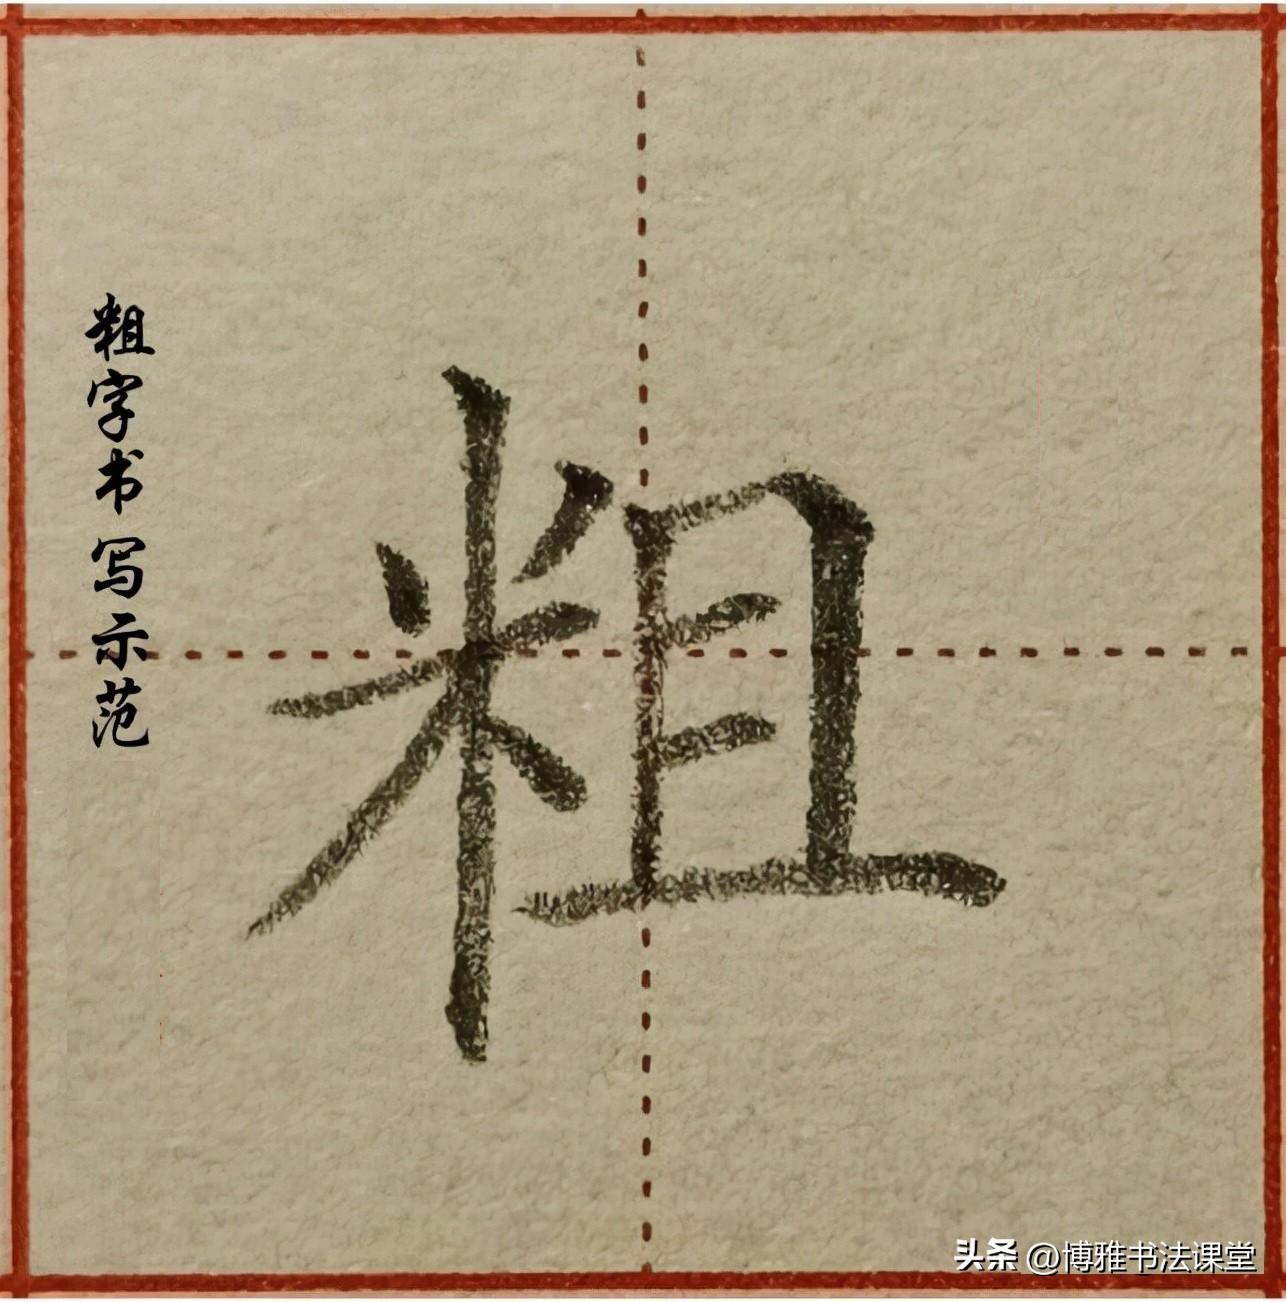 粗字书写示范
粗
头条 @博雅书法课堂